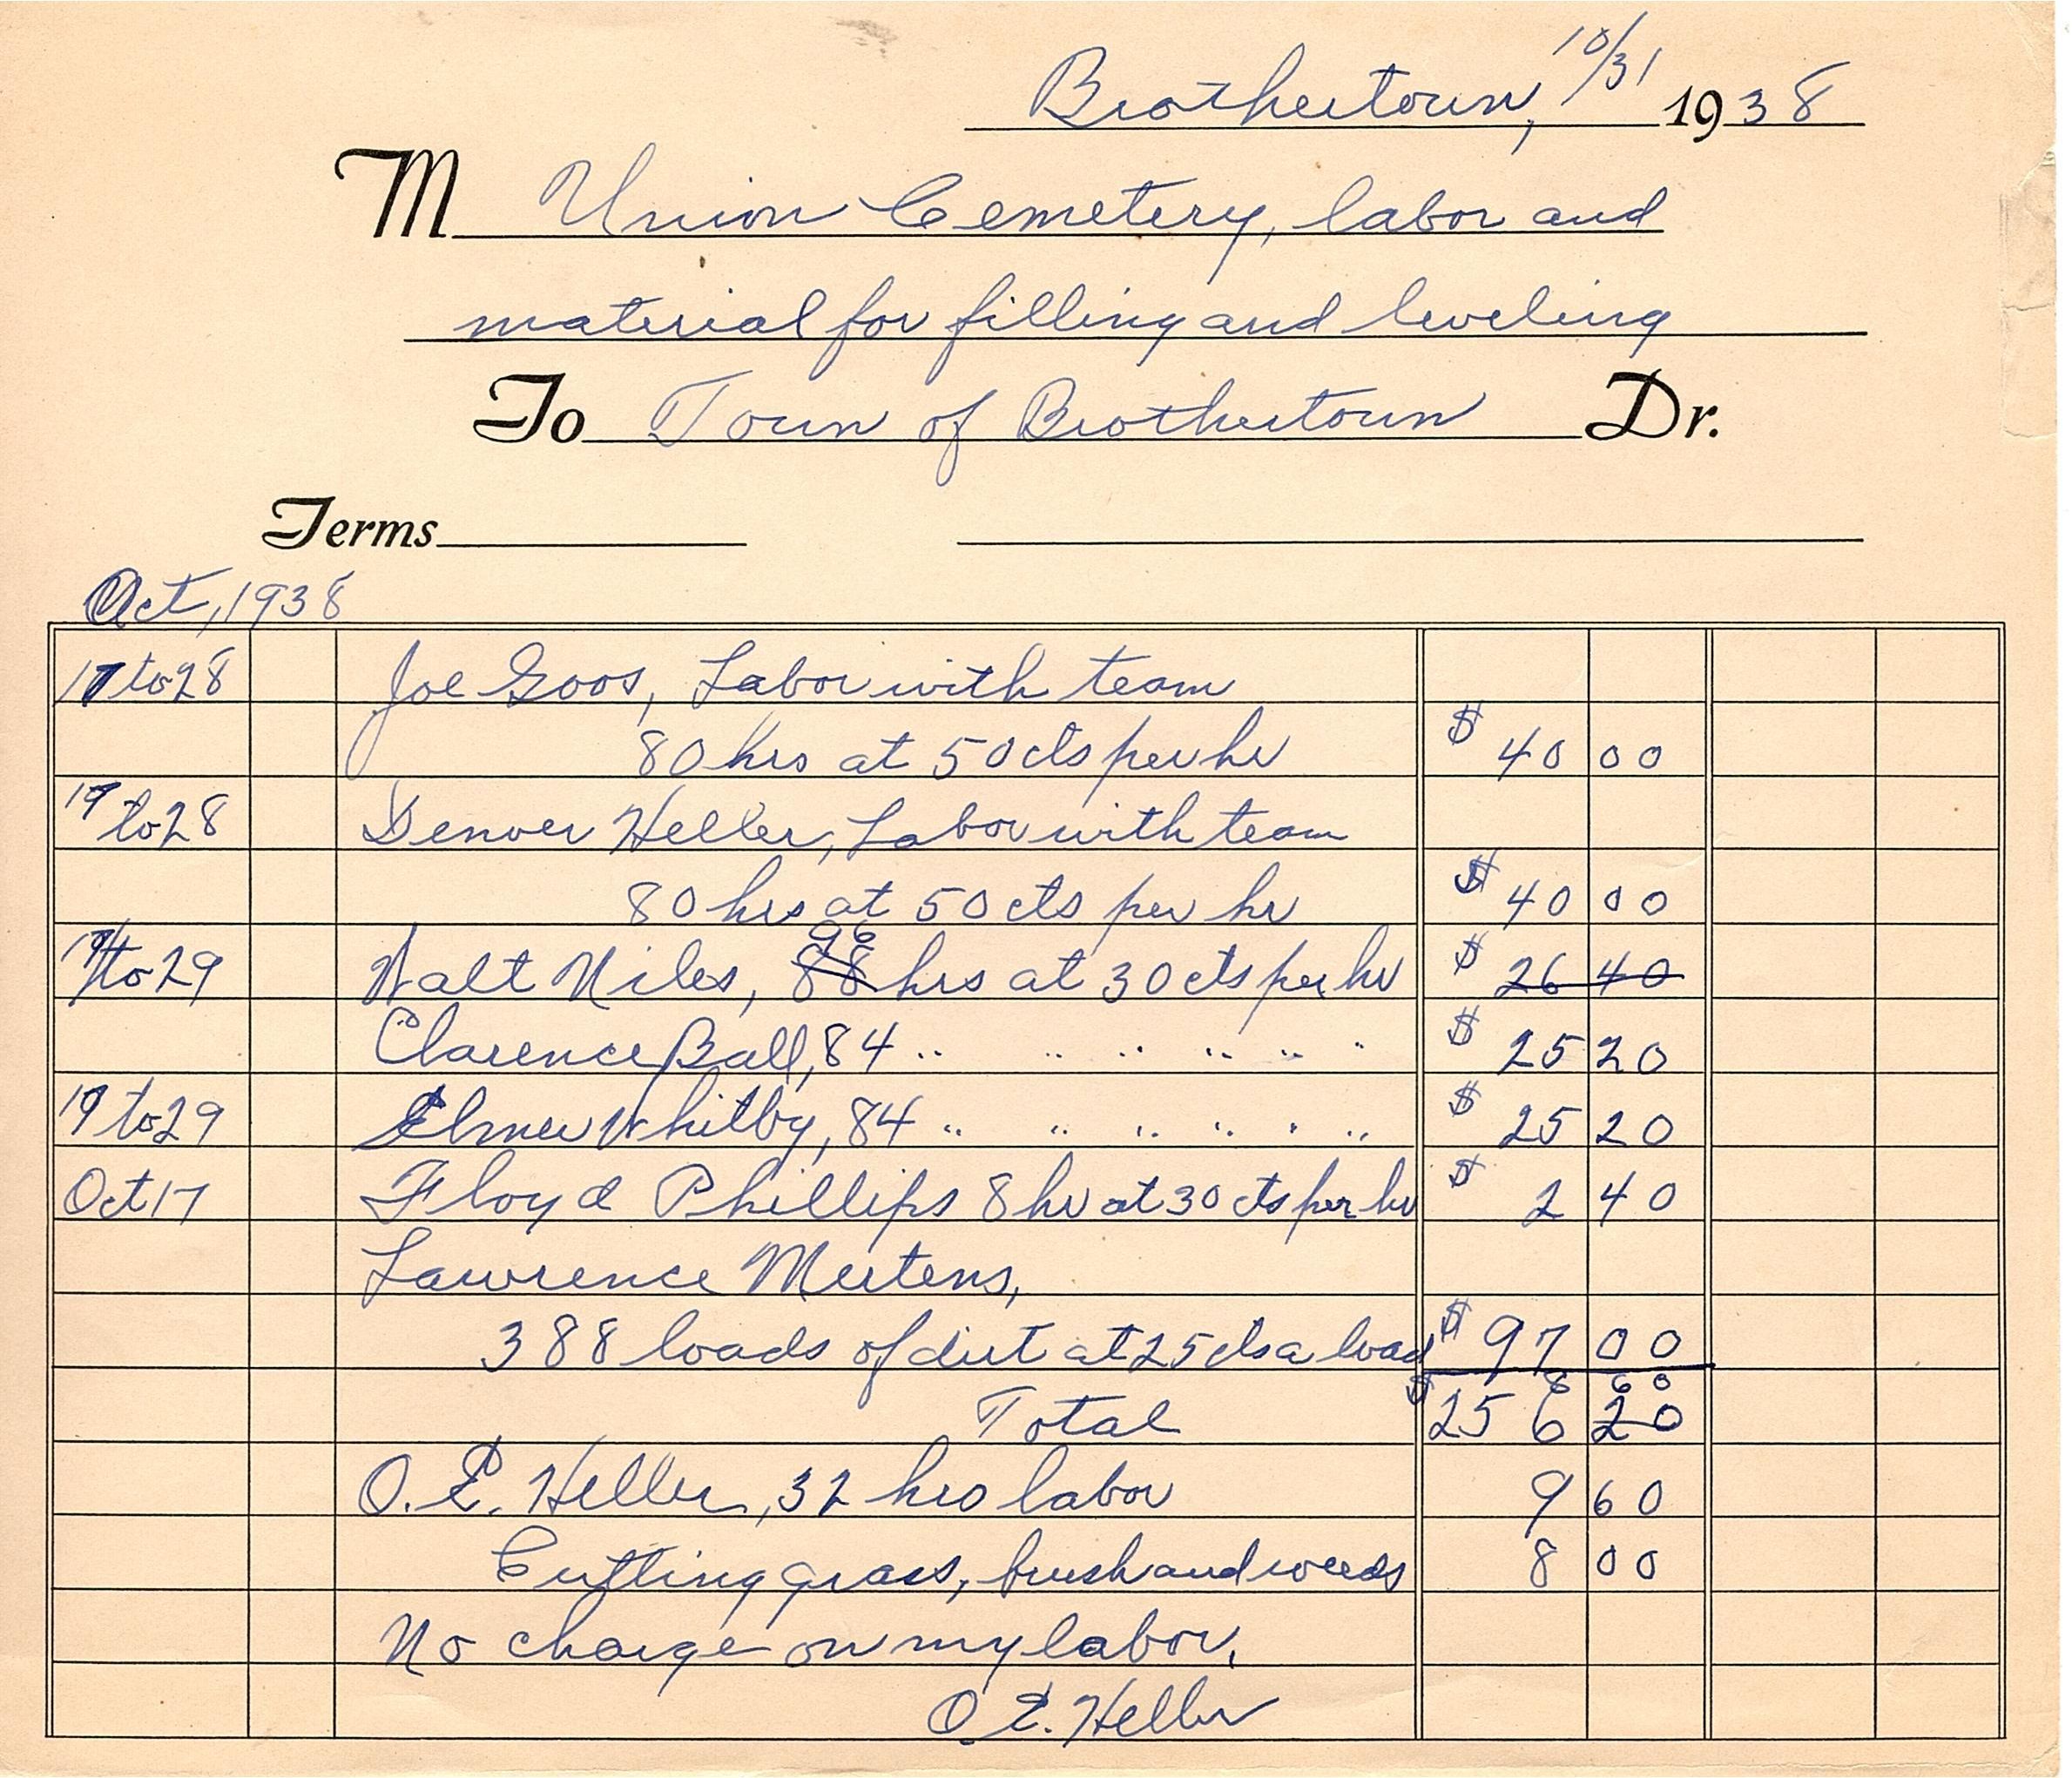 Brothertown, 10/31 1938
M Union Cemetery, labor and
material for filling and leveling
To Town of Brothertown Dr.
Terms
Oct, 1938
17 to 28 Joe Goos, Labor with team
80 hrs at 50 cts per hr $ 40 00
19 to 28 Denver Heller, Labor with team
80 hrs at 50 cts per hr $ 40 00
96
to 29 Walt Niles, 88 hrs at 30 cts per hr $ 26 40
Clarence Ball, 84 " " " " " " $ 25 20
19 to 29 Elmer Whitby, 84 " " " " " " $ 25 20
Oct 17 Floyd Phillips 8 hr at 30 cts per hr $ 2 40
Lawrence Mertens,
388 loads of dirt at 25 cts a load $ 97 00
8 60
Total $ 256 20
O. E. Heller, 32 hrs labor 9 60
Cutting grass, brush and weeds 8 00
No charge on my labor.
O. E. Heller